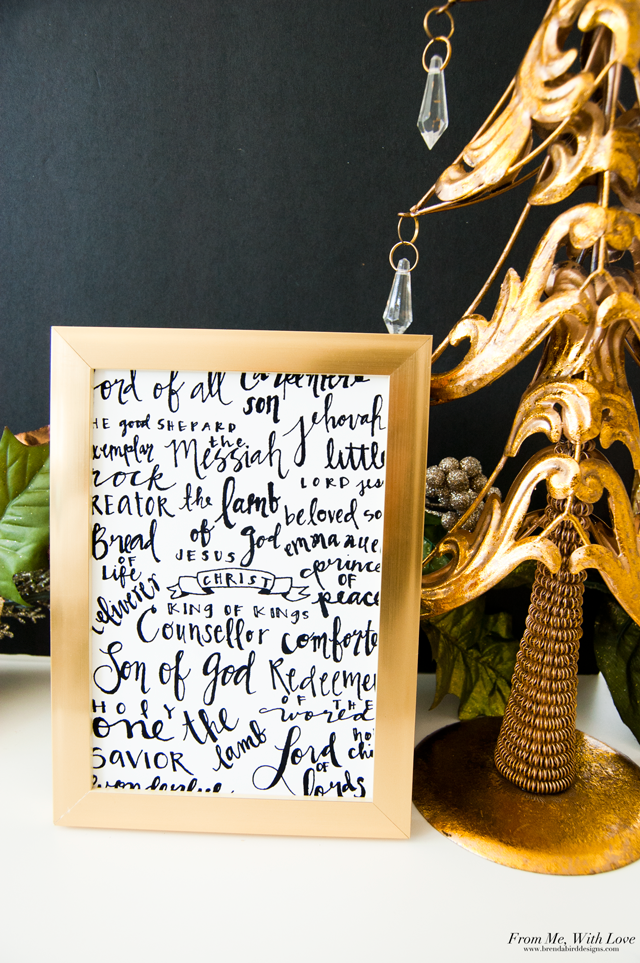 ord of all Carpenters
son
HE good SHEPARD
Jehovah
exemplar the Messiah
little
rock
LORD jes
REATOR the lamb
beloved so
Bread of god
emmanuel
OF Life
JESUS
prince
OF
peace
CHRIST
eliverer
KING OF KINGS
Counsellor
comforte
Son of god
Redeemer
OF THE
world
HOLY
one the
lamb
SAVIOR
Lord
OF
lords
ho
chi
wonderful
From Me, With Love
www.brendabirddesigns.com